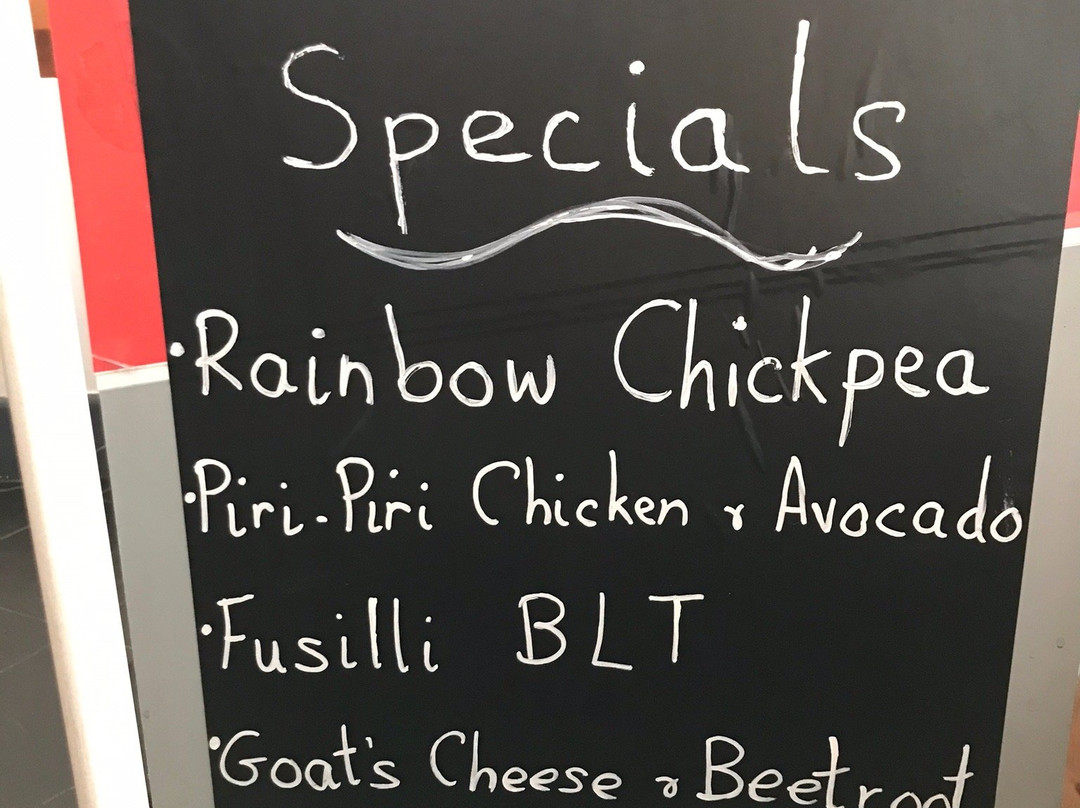 Specials
·Rainbow Chickpea
·Piri-Piri Chicken & Avocado
·Fusilli BLT
·Goat's Cheese & Beetroot